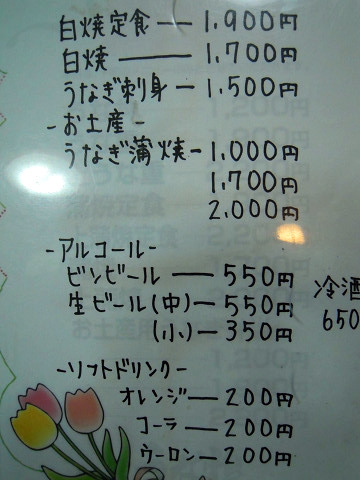 白焼定食 — 1,900円
白焼 — 1,700円
うなぎ刺身 — 1,500円
-お土産-
うなぎ蒲焼 - 1,000円
1,700円
2,000円
-アルコール-
ビンビール — 550円
生ビール(中) — 550円
(小) — 350円
冷酒
650
-ソフトドリンク-
オレンジ — 200円
コーラ — 200円
ウーロン — 200円